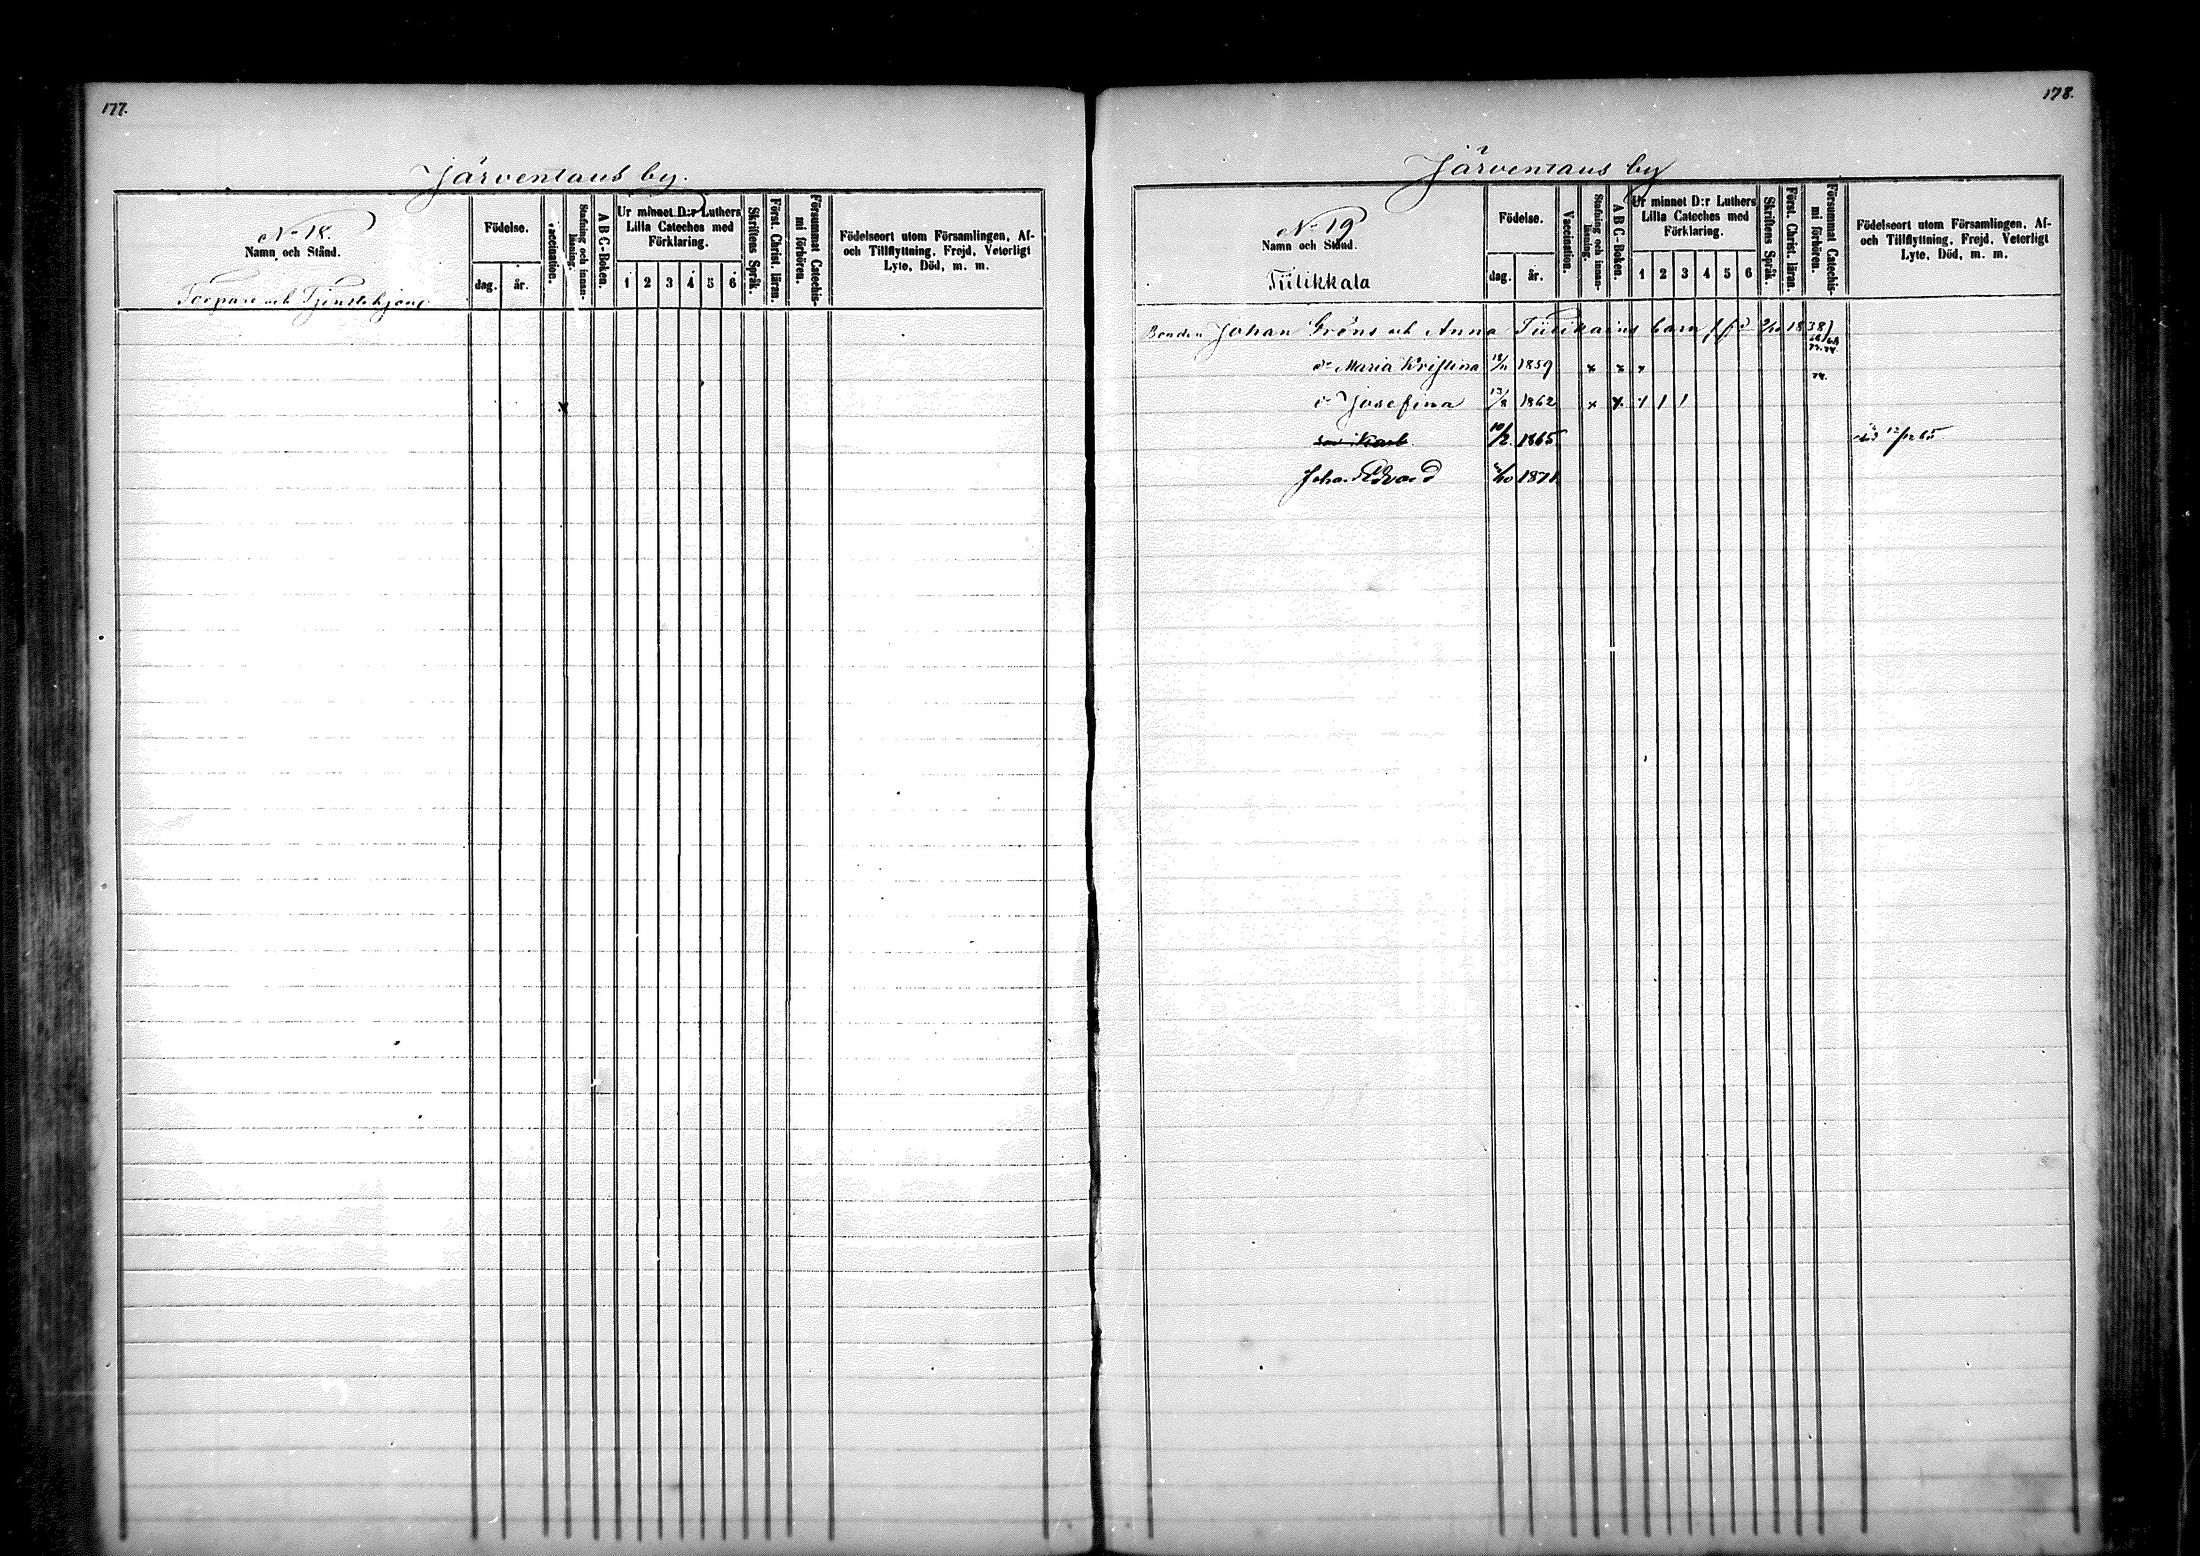 177.
Järventaus by.
No 18.
Namn och Stånd.
Torpare och Tjenstehjon
Födelse.
dag. år.
Vaccination.
Stafning och innan-läsning.
A B C-Boken.
Ur minnet D:r Luthers
Lilla Cateches med
Förklaring.
1 2 3 4 5 6
Skriftens Språk.
Först. Christ. läran.
Försummat Catechis-
mi förhören.
Födelseort utom Församlingen, Af-
och Tillflyttning, Frejd, Veterligt
Lyte, Död, m. m.
x
178.
Järventaus by
No 19
Namn och Stånd.
Tiilikkala
Födelse.
dag. år.
Vaccination.
Stafning och innan-läsning.
A B C-Boken.
Ur minnet D:r Luthers
Lilla Cateches med
Förklaring.
1 2 3 4 5 6
Skriftens Språk.
Först. Christ. läran.
Försummat Catechis-
mi förhören.
Födelseort utom Församlingen, Af-
och Tillflyttning, Frejd, Veterligt
Lyte, Död, m. m.
Bonden Johan Gröns och Anna Tiilikains barn 1838)
dr Maria Kristina 1859 x x x
dr Josefina 1862 x x x 1 1
son Karl 10/2 1865 död 12/12 65
Johan Edvard 1871